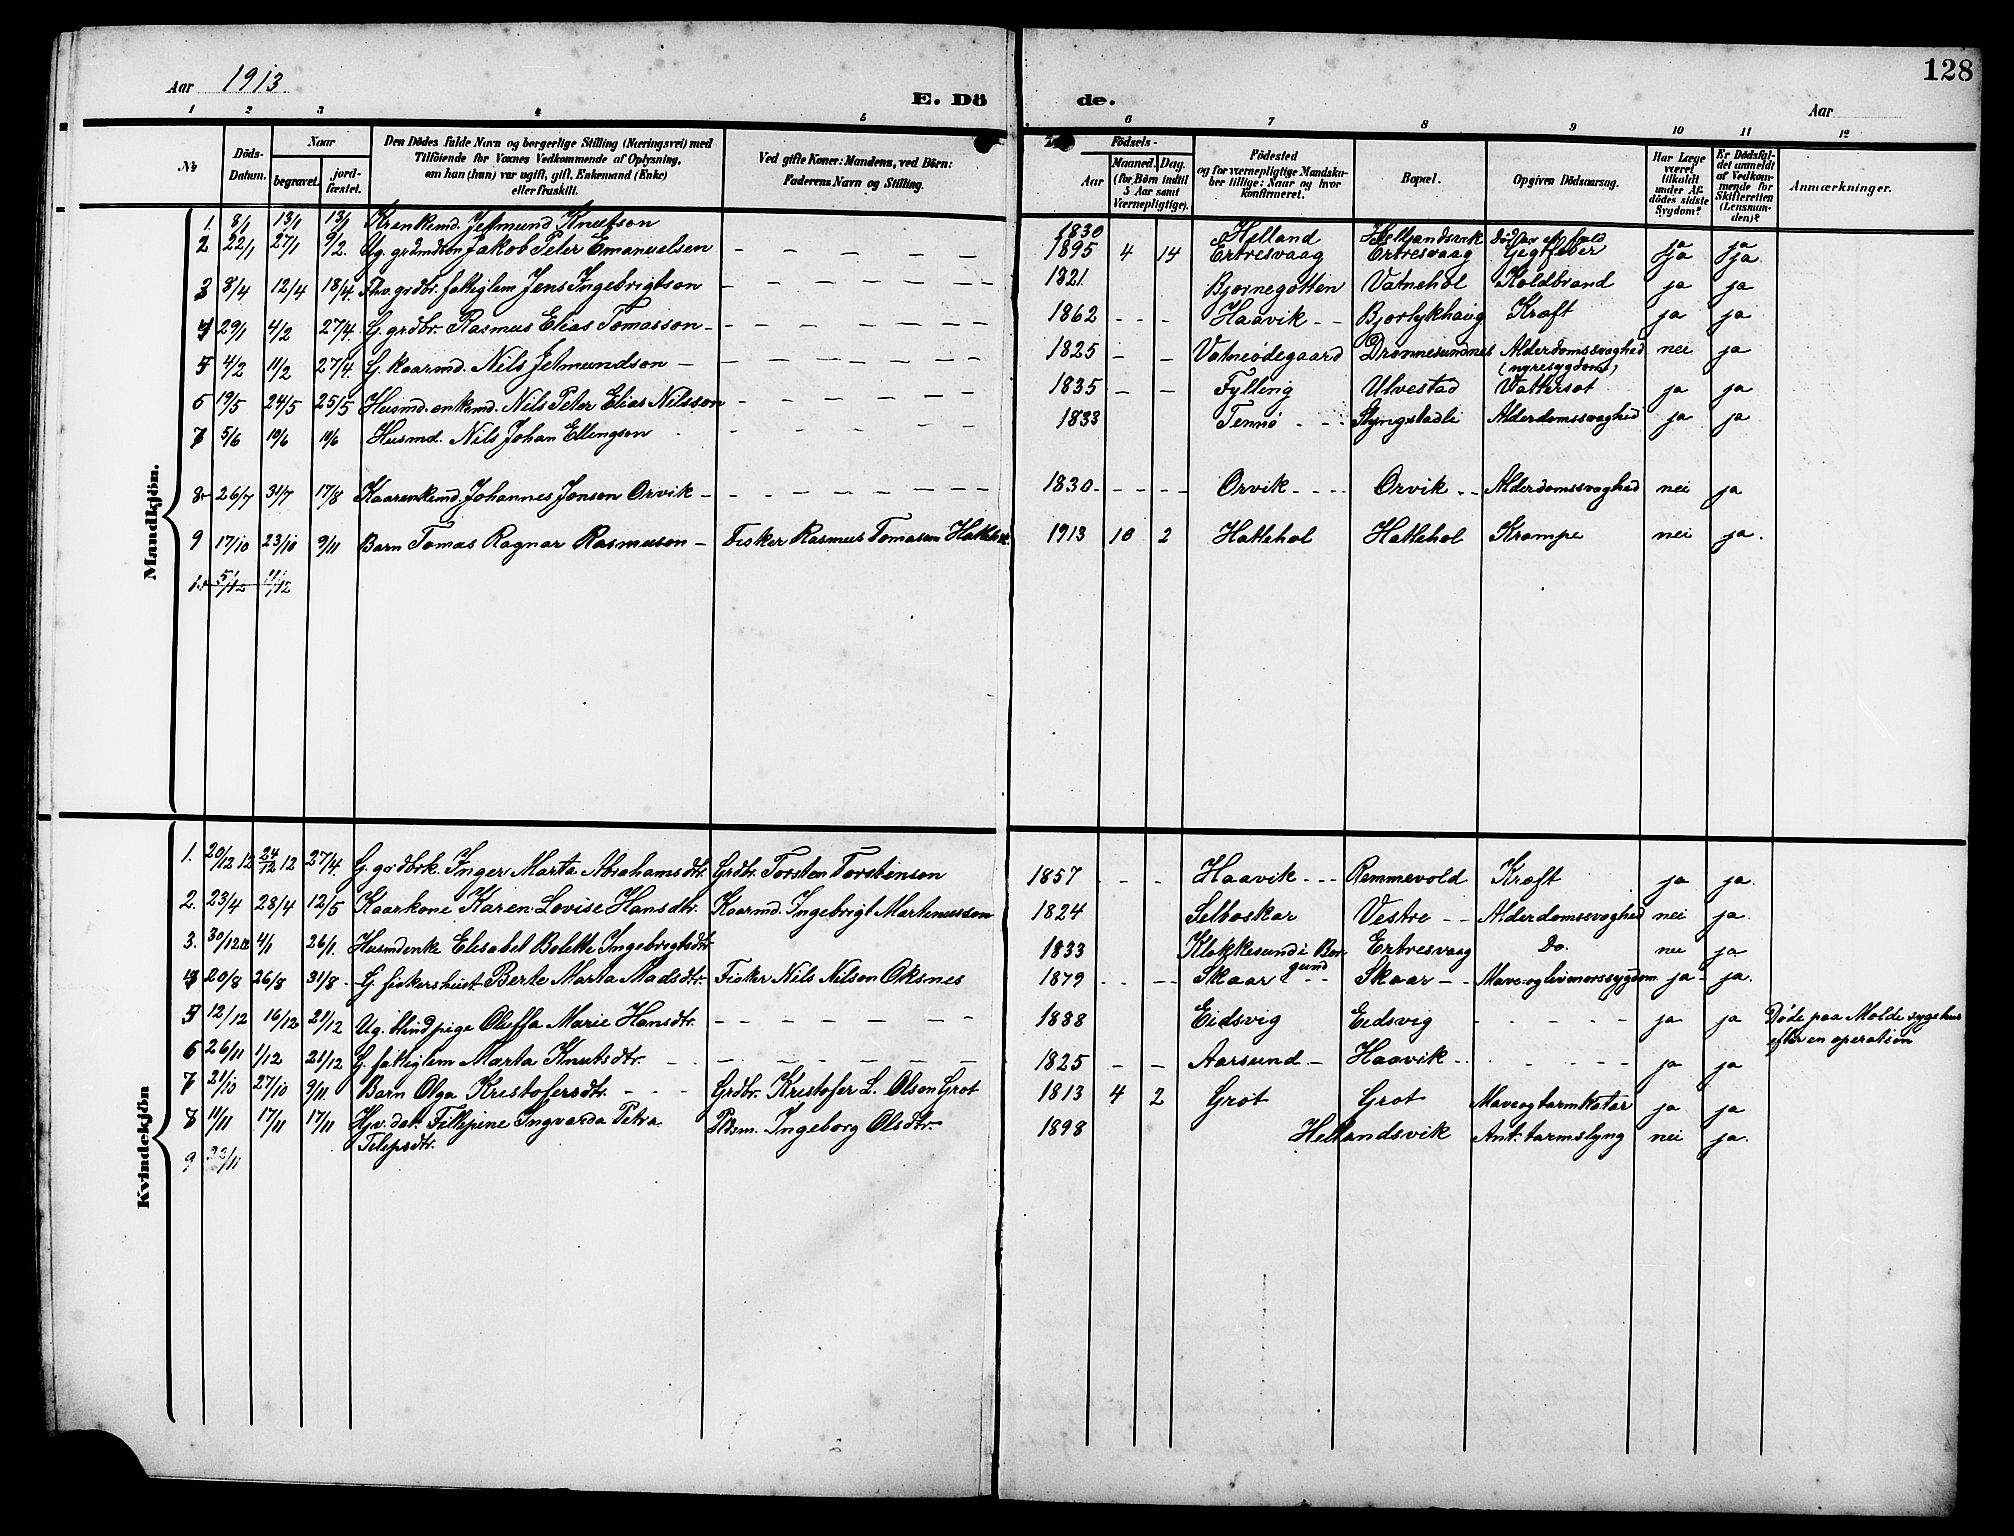 128
Aar 1913
E. Dö
de.
Aar
1 2 3 4 5 6 7 8 9 10 11 12
No
Döds-Datum.
Naar
begravet.
jordfæstet.
Den Dödes fulde Navn og borgerlige Stilling (Næringsvei) med
Tilföiende for Voxnes Vedkommende af Oplysning,
om han (hun) var ugift, gift, Enkemand (Enke)
eller fraskilt.
Ved gifte Koner: Mandens, ved Börn:
Faderens Navn og Stilling.
Födsels-
Aar
Maaned.
Dag.
(for Börn indtil
5 Aar samt
Værnepligtige).
Födested
og for værnepligtige Mandskaber tillige: Naar og hvor
konfirmeret.
Bopæl.
Opgiven Dödsaarsag.
Har Læge
været
tilkaldt
under Afdödes sidste
Sygdom?
Er Dödsfaldet anmeldt
af Vedkommende for
Skifteretten
(Lensmanden)?
Anmærkninger.
Mandkjön.
1. 8/1 13/1 13/1 Jetmund Knutson 1830 Helland Hellandsvik ja ja
2 22/1 27/1 9/2. Ug. grdmdsön Jakob Peter Emanuelsen 1895 4 14 Ertresvaag Ertresvaag Gigtfeber ja ja
3 8/4 12/4 18/4. Fhv. grdbr. fattiglem Jens Ingebrigtson 1821 Bjørnegotten Vatnehol Koldbrand ja ja
4 29/1 4/2 27/4. G. grdbr. Rasmus Elias Tomasson 1862 Haavik Bjørlykhaug Kræft ja ja
5 4/2 11/2 27/4. G. kaarmd. Nils Jetmundson 1825 Vatneødegaard Drønnesundnes Alderdomssvaghed nei ja
(nyresygdom)
6 19/5 24/5 25/5 Husmd. enkemd. Nils Peter Elias Nilsson 1835 Fylling Ulvestad Vattersot ja ja
7 5/6 10/6 10/6 Husmd. Nils Johan Ellingson 1833 Tennø Slyngstadli Alderdomssvaghed ja ja
8. 26/7 31/7 17/8 Kaarenkemd. Johannes Jonsen Orvik 1830 Orvik Orvik Alderdomssvaghed nei ja
9 17/10 23/10 9/11 Barn Tomas Ragnar Rasmuson Fisker Rasmus Tomasen Hattehol 1913 10 2 Hattehol Hattehol Krampe nei ja.
10 5/12 11/12
Kvindekjön
1. 20/12 12 24/12 12 27/4. G. grdbrk. Inger Marta Abrahamsdtr. Grdbr. Torsten Torstenson 1857 Haavik Remmevold Kræft ja ja.
2. 23/4 28/4 12/5 Kaarkone Karen Lovise Hansdtr. Kaarmd. Ingebrigt Martinusson 1824 Selboskar Vestre Alderdomssvaghed nei ja.
3. 30/12 12 4/1 26/1. Husmdenke Elisabet Bolette Ingebrigtsdtr. 1833 Klokkesund i Borgund Ertresvaag Do. nei ja
4 20/8 26/8 31/8 G. fiskershust. Berte Marta Madsdtr. Fisker Nils Nilson Oksnes 1879 Skaar Skaar Mave- og livmorssygdom ja ja.
5 12/12 16/12 21/12 Ug. blind pige Oluffa Marie Hansdtr. 1888 Eidsvig Eidsvig ja ja Døde paa Molde sygehus
efter en operation
6 26/11 1/12 21/12 G. fattiglem Marta Knutsdtr. 1825 Aarsund Haavik ja ja
7 21/10 27/10 9/11. Barn Olga Kristofersdtr. Grdbr. Kristofer L. Olson Grøt 1813 4 2 Grøt Grøt Mave og tarmkatar ja ja
8 11/11 17/11 17/11 Hjv. dat. Filipine Ingvarda Petra Pbsm. Ingeborg Olsdtr. 1898 Hellandsvik Ant. tarmslyng nei ja.
Filipsdtr.
9 22/11